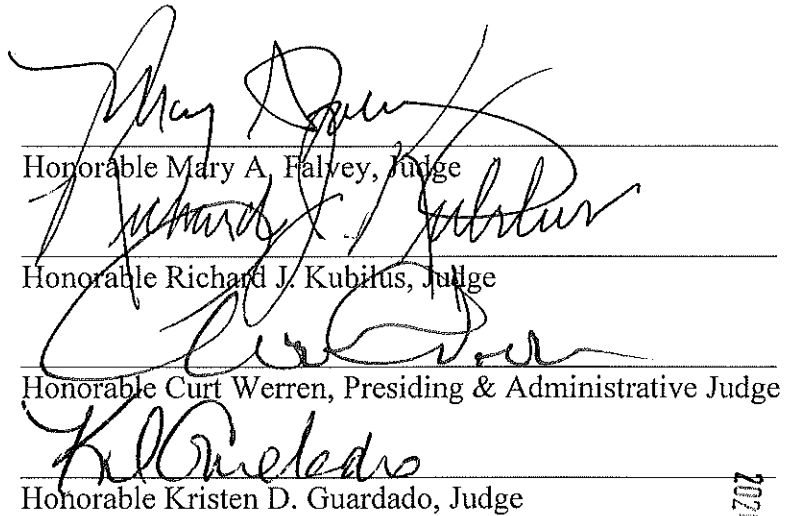 Honorable Mary A. Falvey, Judge
Richard J. Kubilus
Honorable Richard J. Kubilus, Judge
Honorable Curt Werren, Presiding & Administrative Judge
Honorable Kristen D. Guardado, Judge
202